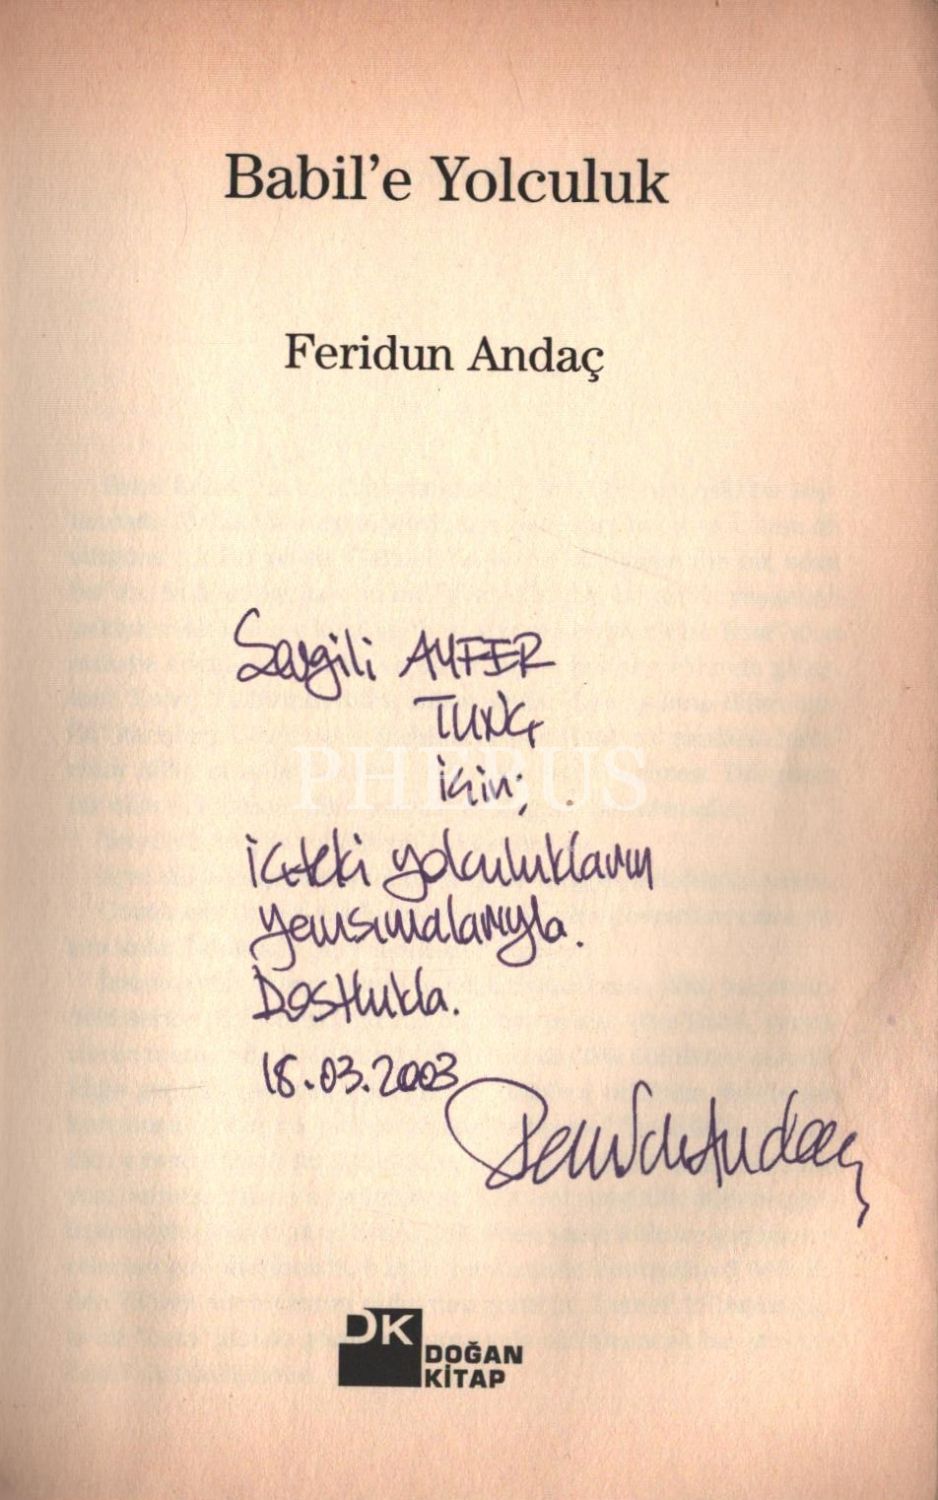 Babil'e Yolculuk
Feridun Andaç
Sevgili AYFER
TUNÇ
için;
PHEBUS
içteki yolculukların
yansımalarıyla.
Dostlukla.
18.03.2003
Feridun Andaç
DK
DOĞAN
KİTAP